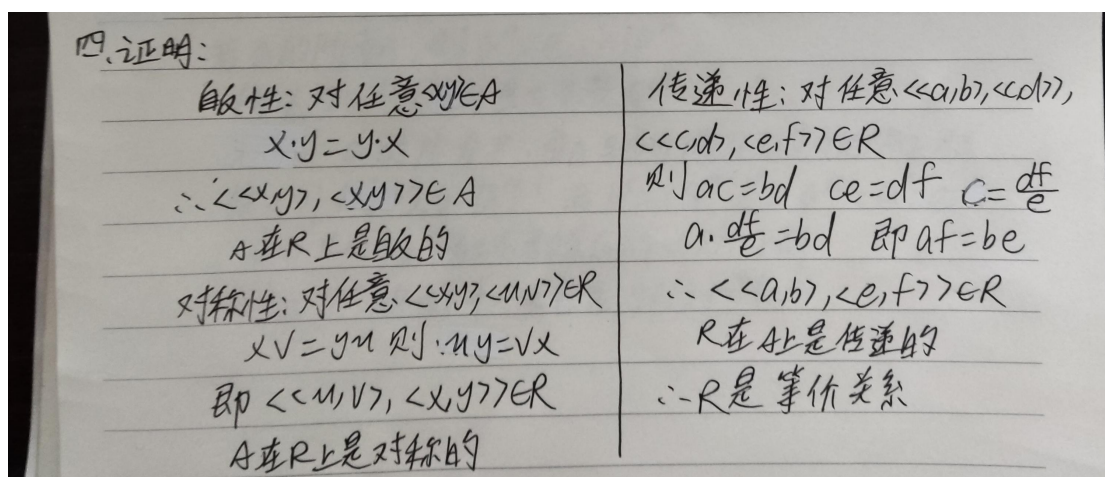 四.证明:
自反性: 对任意<x,y>∈A
x·y=y·x
∴<<x,y>,<x,y>>∈A
A在R上是自反的
对称性: 对任意<<x,y>,<u,v>>∈R
xv=yu 则:uy=vx
即<<u,v>,<x,y>>∈R
A在R上是对称的
传递性: 对任意<<a,b>,<c,d>>,
<<c,d>,<e,f>>∈R
则 ac=bd ce=df c=df/e
a·df/e=bd 即 af=be
∴<<a,b>,<e,f>>∈R
R在A上是传递的
∴R是等价关系